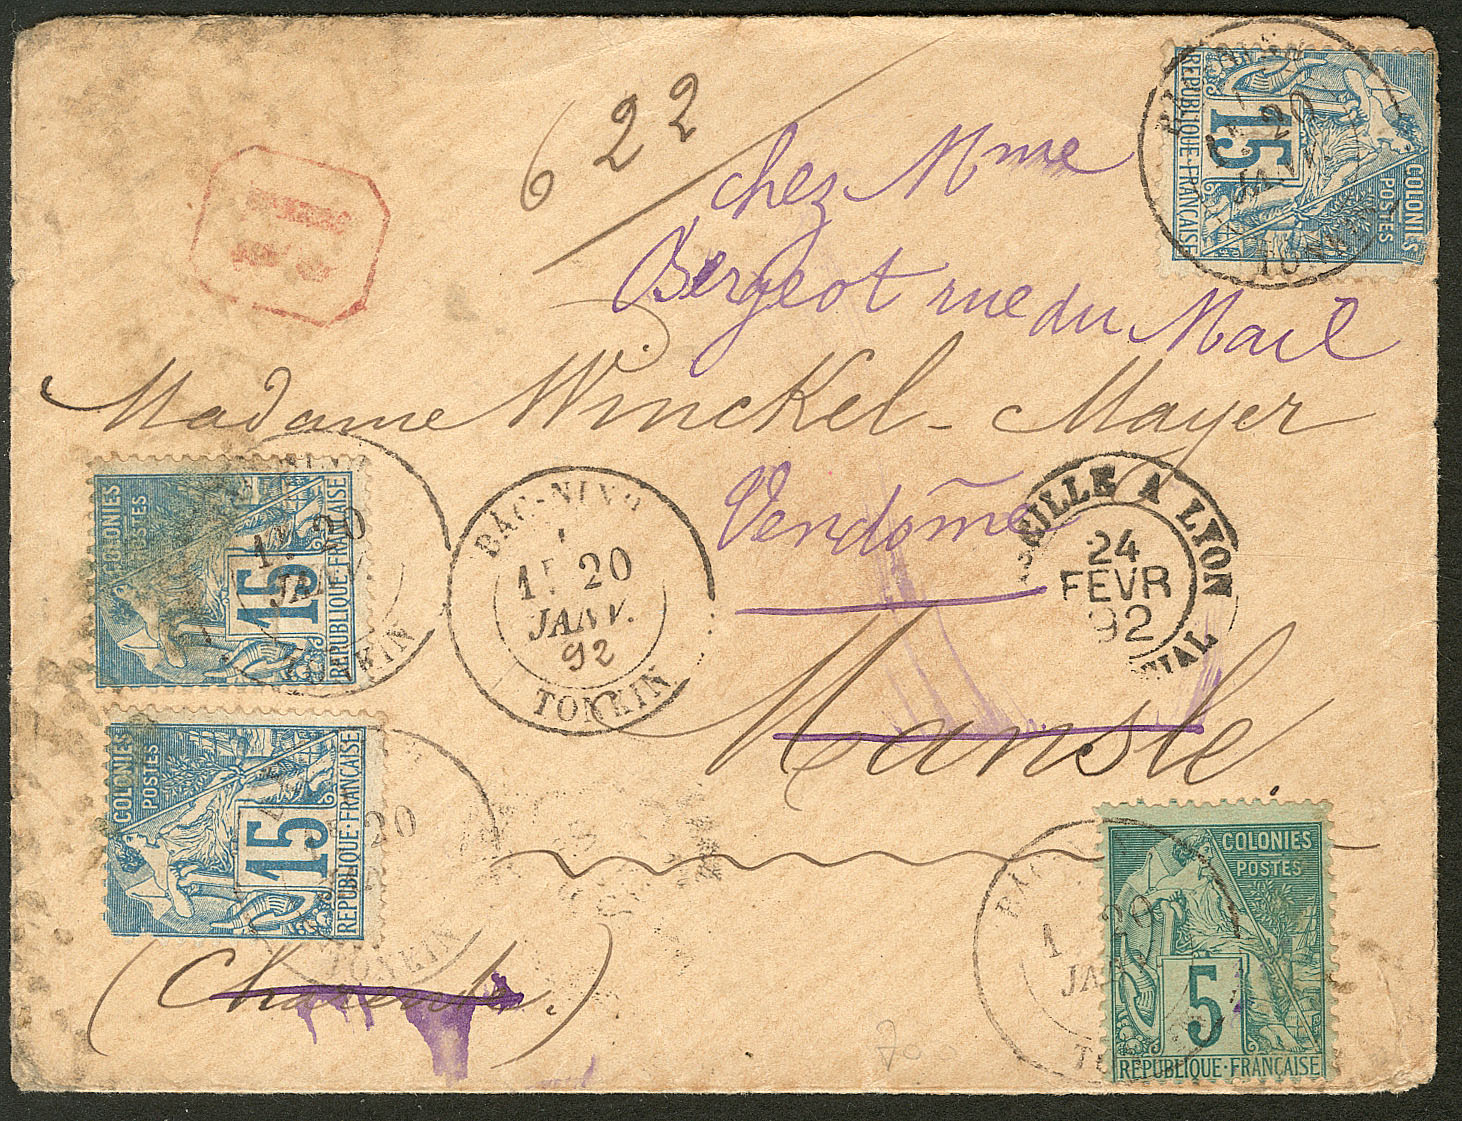 622
chez Mme
Bergeot rue du Mail
Madame Winckel-Mayer
Vendôme
Mansle
(Charente.)
COLONIES
POSTES
15
REPUBLIQUE-FRANÇAISE
20
TONKIN
COLONIES
POSTES
15
REPUBLIQUE-FRANÇAISE
1 20
JANV.
TONKIN
BAC-NINH
1 20
JANV.
92
TONKIN
EILLE A LYON
24
FEVR
92
COLONIES
POSTES
15
REPUBLIQUE-FRANÇAISE
20
TONKIN
COLONIES
POSTES
5
REPUBLIQUE-FRANÇAISE
1 20
70